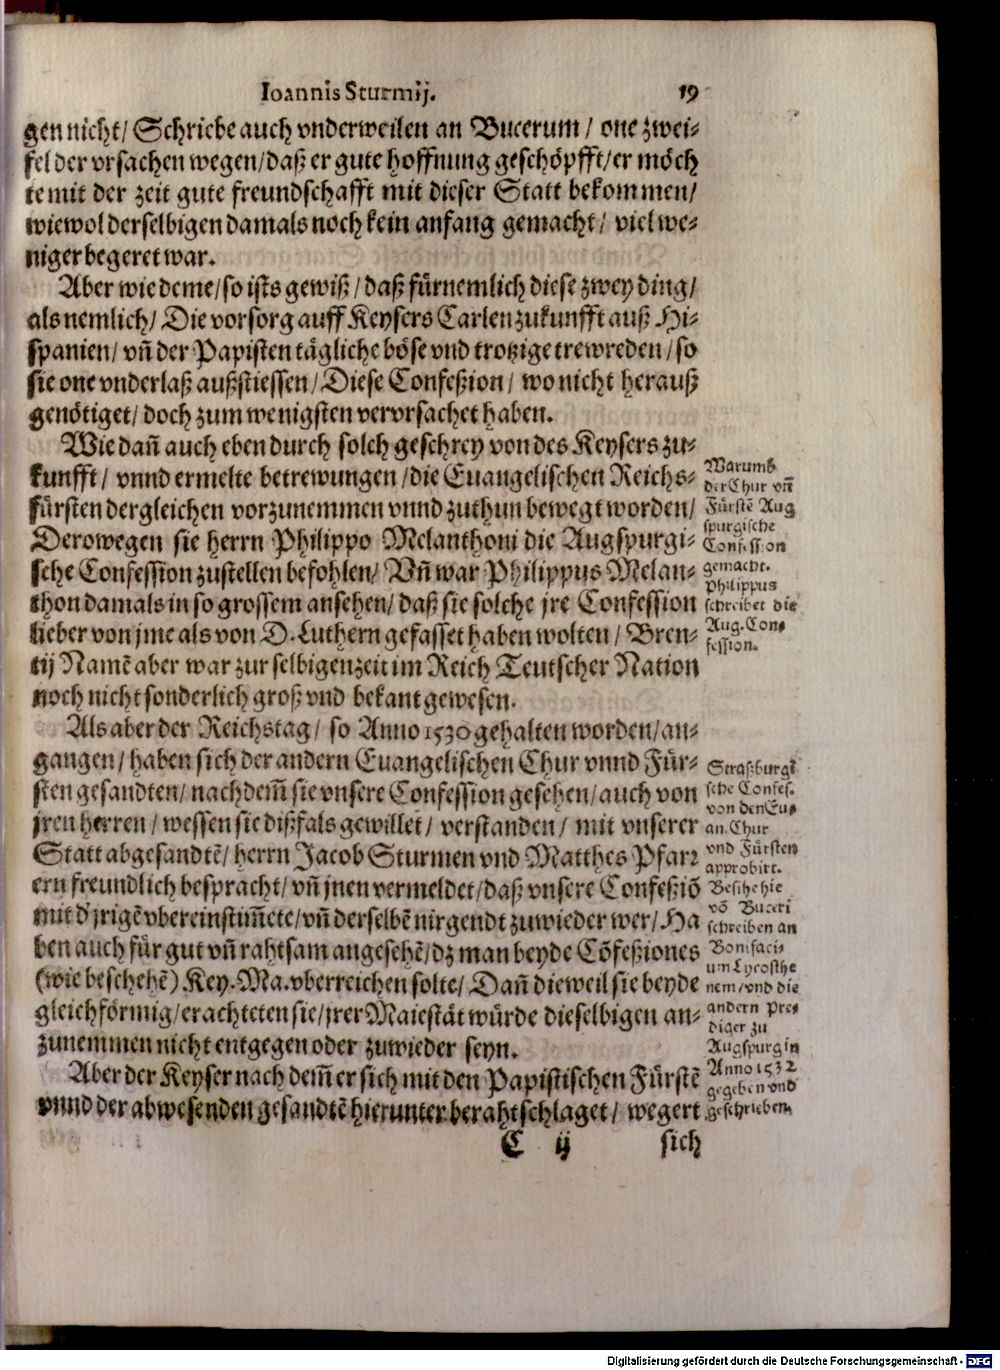 Ioannis Sturmij. 19
gen nicht/ Schriebe auch vnderweilen an Bucerum/ one zwei-
fel der vrsachen wegen/daß er gute hoffnung geschöpfft/er möch
te mit der zeit gute freundschafft mit dieser Statt bekommen/
wiewol derselbigen damals noch kein anfang gemacht/ viel we-
niger begeret war.
Aber wie deme/so ists gewiß/daß fürnemlich diese zwey ding/
als nemlich/ Die vorsorg auff Keysers Carlen zukunfft auß Hi-
spanien/ vñ der Papisten tägliche böse vnd trotzige trewreden/so
sie one vnderlaß außstiessen/Diese Confeßion/ wo nicht herauß
genötiget/doch zum wenigsten vervrsachet haben.
Wie dañ auch eben durch solch geschrey von des Keysers zu-
kunfft/ vnnd ermelte betrewungen/die Euangelischen Reichs-
fürsten dergleichen vorzunemmen vnnd zuthun bewegt worden/
Derowegen sie herrn Philippo Melanthoni die Augspurgi-
sche Confession zustellen befohlen/ Vñ war Philippus Melan-
thon damals in so grossem ansehen/ daß sie solche jre Confession
lieber von jme als von D. Luthern gefasset haben wolten/ Bren-
tij Namẽ aber war zur selbigen zeit im Reich Teutscher Nation
noch nicht sonderlich groß vnd bekant gewesen.
Als aber der Reichstag/ so Anno 1530 gehalten worden/an-
gangen/haben sich der andern Euangelischen Chur vnnd Für-
sten gesandten/ nachdem̃ sie vnsere Confession gesehen/auch von
jren herren/ wessen sie dißfals gewillet/ verstanden/ mit vnserer
Statt abgesandtẽ/ herrn Jacob Sturmen vnd Matthes Pfarr
ern freundlich bespracht/ vñ jnen vermeldet/daß vnsere Confeßiõ
mit d' jrigẽ vbereinstim̃ete/vñ derselbẽ nirgendt zuwieder wer/Ha
ben auch für gut vñ rahtsam angesehẽ/dz man beyde Cõfeßiones
(wie beschehẽ) Key. Ma. vberreichen solte/ Dañ dieweil sie beyde
gleichförmig/erachteten sie/jrer Maiestät würde dieselbigen an-
zunemmen nicht entgegen oder zuwieder seyn.
Aber der Keyser nach dem̃ er sich mit den Papistischen Fürstẽ
vnnd der abwesenden gesandtẽ hierunter berahtschlaget/ wegert
C ij sich
Warumb
der Chur vñ
Fürstẽ Aug
spurgische
Confession
gemacht.
Philippus
schreibet die
Aug. Con-
fession.
Straßburgi
sche Confes.
von den Eu-
an. Chur
vnd Fürsten
approbirt.
Besihe hie
võ Buceri
schreiben an
Bonifaci-
um Lycosthe
nem/vnd die
andern Pre-
diger zu
Augspurg in
Anno 1532
gegeben vnd
geschrieben.
Digitalisierung gefördert durch die Deutsche Forschungsgemeinschaft - DFG